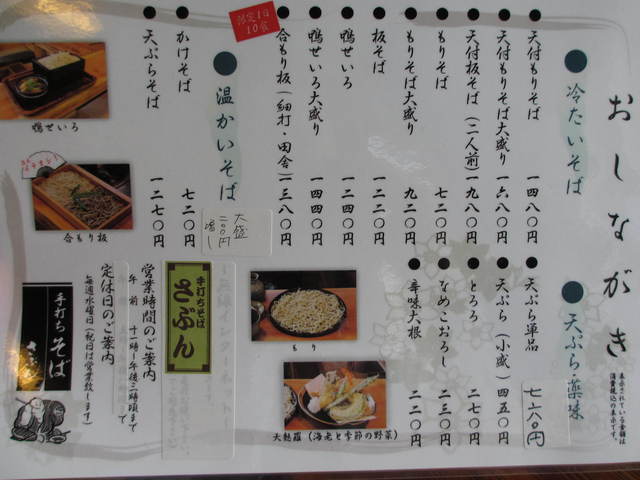 おしながき
表示されている金額は
消費税込の表示です。
冷たいそば
天付もりそば 一四八〇円
天付もりそば大盛り 一六八〇円
天付板そば(二人前) 一九八〇円
もりそば 七二〇円
もりそば大盛り 九二〇円
板そば 一二二〇円
鴨せいろ 一二四〇円
鴨せいろ大盛り 一四四〇円
合もり板(細打・田舎) 一三八〇円
限定1日
10食
温かいそば
かけそば 七二〇円
天ぷらそば 一二七〇円
大盛
二〇〇円
増し
鴨せいろ
合もり板
天ぷら薬味
天ぷら単品 七六〇円
天ぷら(小盛) 四五〇円
とろろ 二七〇円
なめこおろし 二三〇円
辛味大根 二二〇円
もり
天麩羅(海老と季節の野菜)
手打ちそば
さぶん
営業時間のご案内
午前 十一時〜午後二時頃まで
定休日のご案内
毎週水曜日(祝日は営業致します)
手打ち
そば